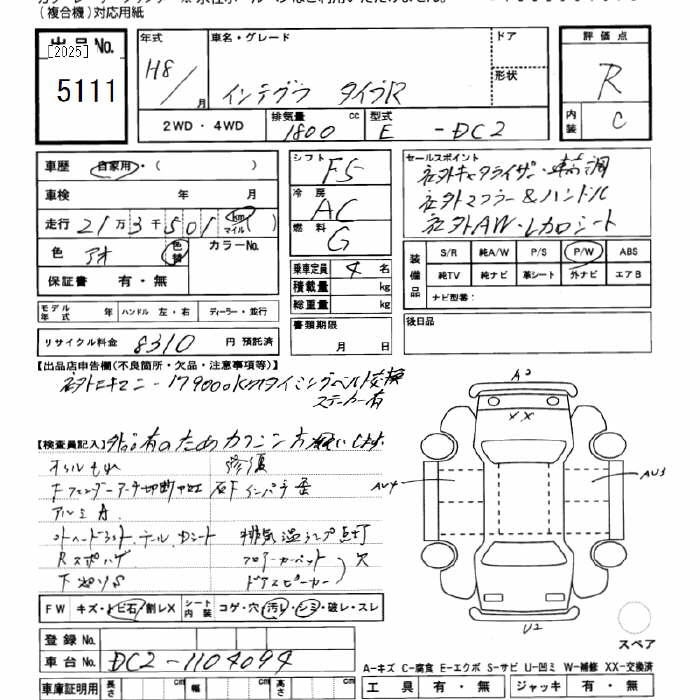 (複合機)対応用紙
出品No.
[2025]
5111
年式
H8/ 月
車名・グレード
インテグラ タイプR
ドア
形状
2WD・4WD
排気量 cc
1800
型式
E -DC2
評価点
R
内装
C
車歴 自家用・( )
車検 年 月
走行 21万3千501 km マイル ( )
色 アオ 色替 カラーNo.
保証書 有・無
シフト F5
冷房 AC
燃料 G
乗車定員 4 名
積載量 kg
総重量 kg
セールスポイント
社外キャタライザー・車高調
社外マフラー&ハンドル
社外AW・レカロシート
装備品
S/R 純A/W P/S P/W ABS
純TV 純ナビ 革シート 外ナビ エアB
ナビ型番:
モデル年式 年 ハンドル 左・右 ディーラー・並行
書類期限
月 日
後日品
リサイクル料金 8310 円 預託済
【出品店申告欄(不良箇所・欠品・注意事項等)】
社外エキマニ-179000kmタイミングベルト交換
ステッカー有
【検査員記入】
オイルもれ
アルミA
排気温ランプ点灯
フロアーカーペット 穴
ドアスピーカー
A2
XX
AU4
AU3
U2
スペア
FW キズ・トビ石・割レX シート内装 コゲ・穴・汚レ・シミ・破レ・スレ
登録No.
車台No. DC2-1104094
A-キズ C-腐食 E-エクボ S-サビ U-凹ミ W-補修 XX-交換済
車庫証明用 長さ cm 幅 cm 高さ cm
工具 有・無 ジャッキ 有・無